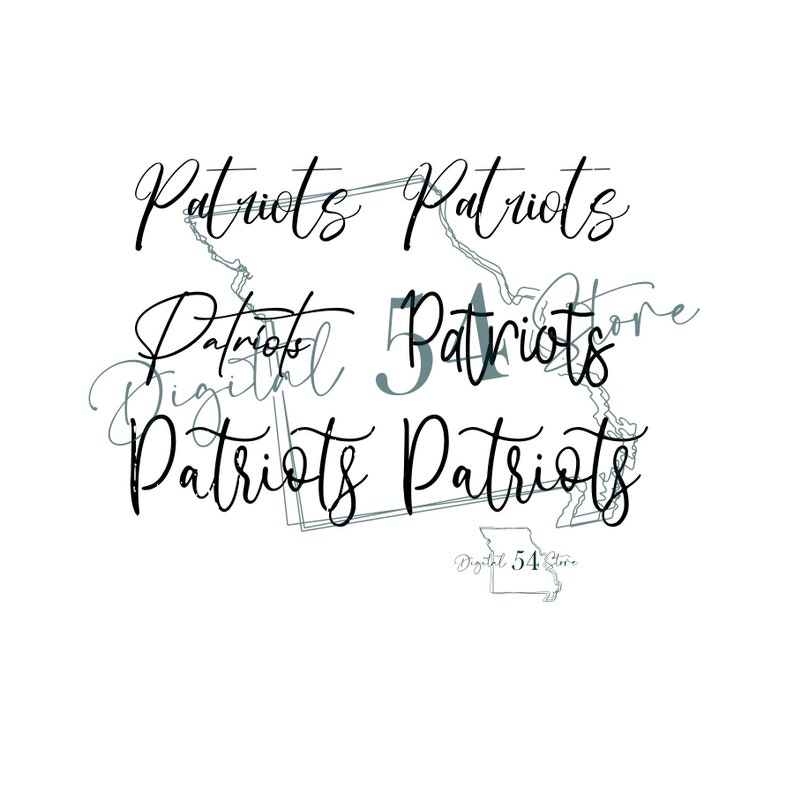 Patriots Patriots
Patriots Patriots
Digital 54 Store
Patriots Patriots
Digital 54 Store